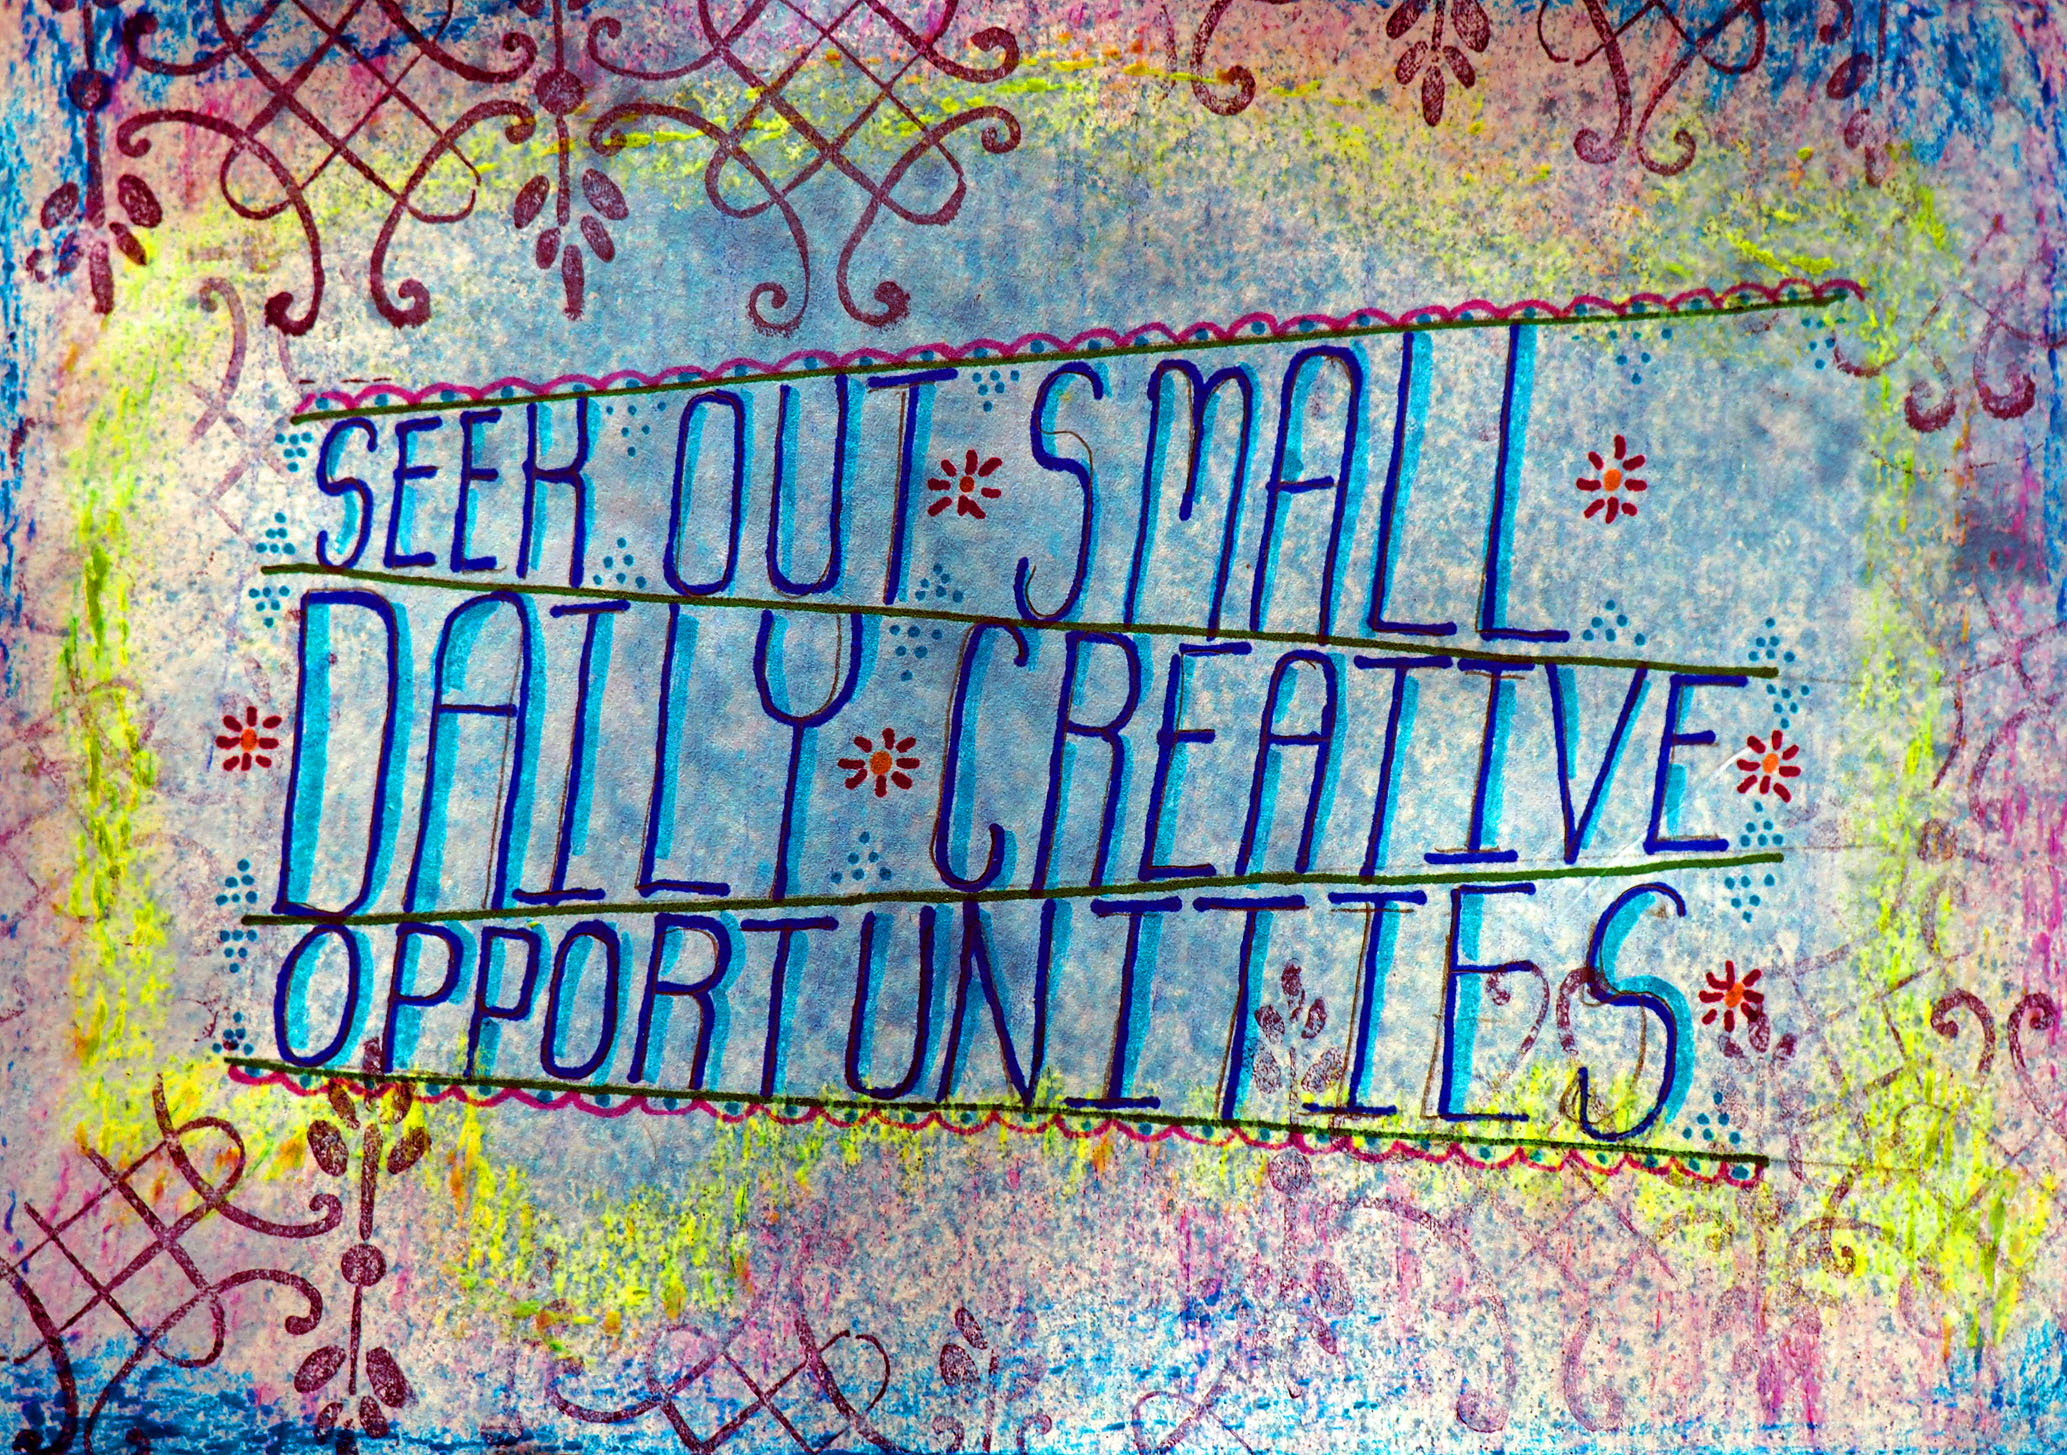 SEEK OUT SMALL
DAILY CREATIVE
OPPORTUNITIES